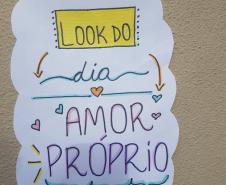 LOOK DO
dia
AMOR
PRÓPRIO